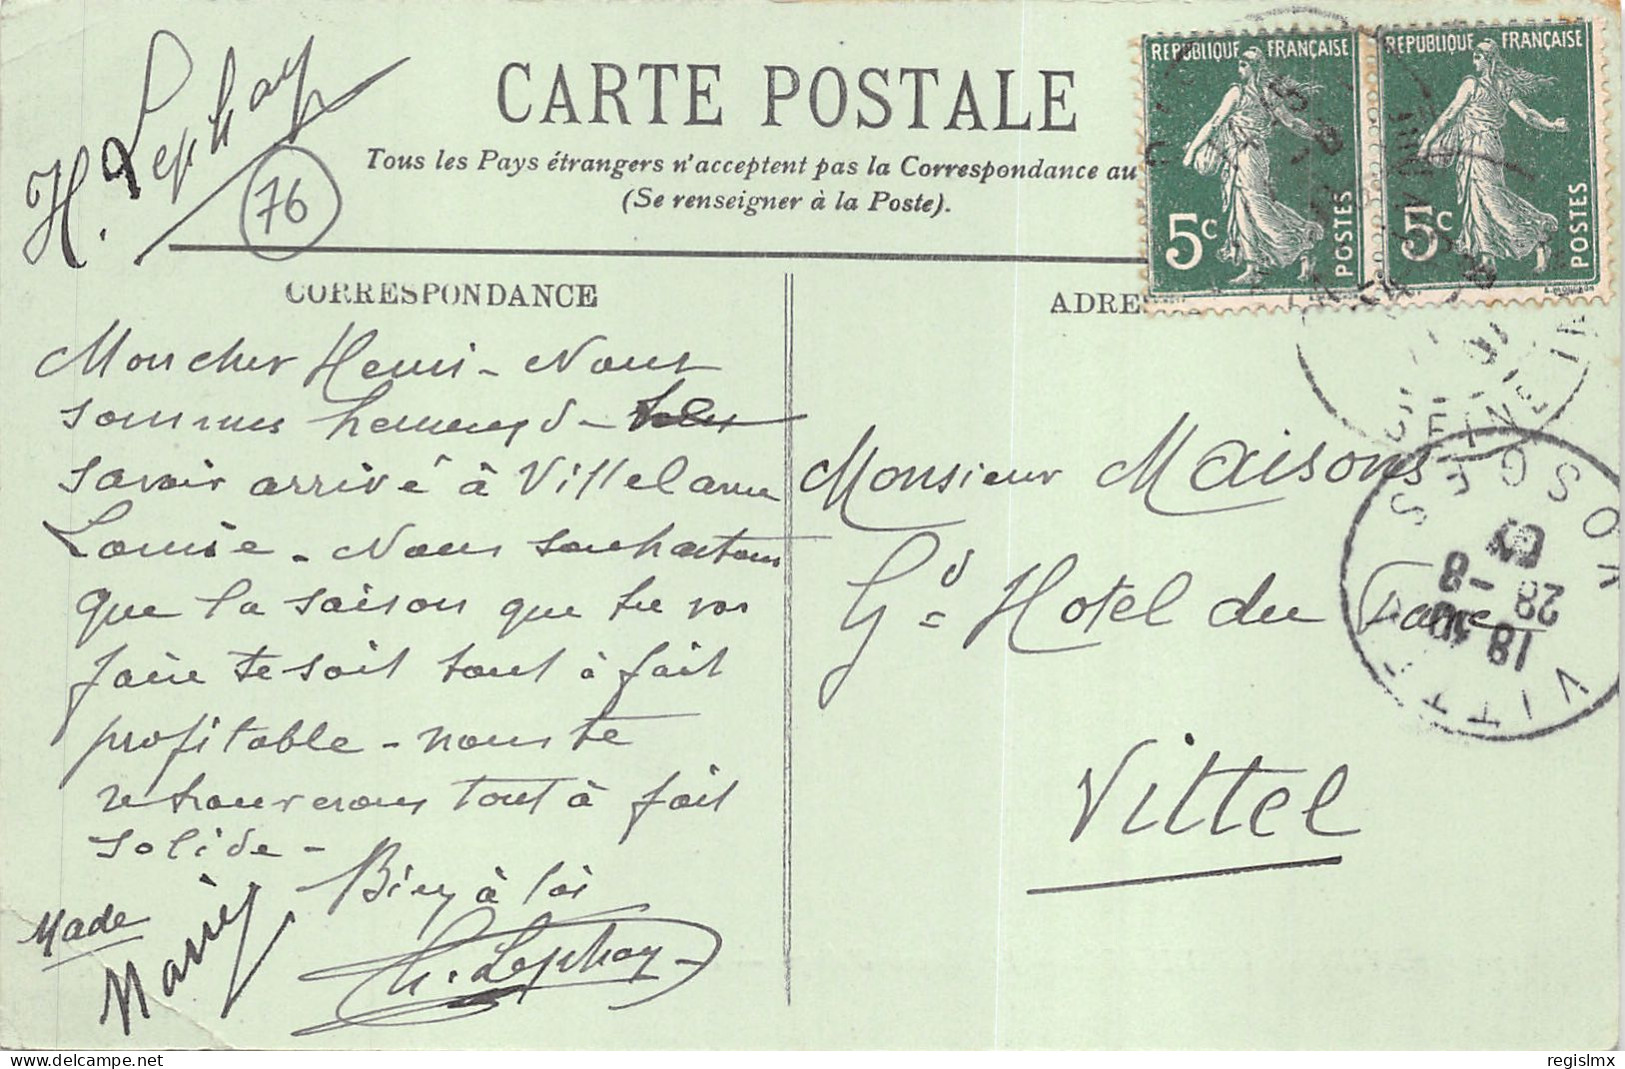 H. Lephay
76
CARTE POSTALE
Tous les Pays étrangers n'acceptent pas la Correspondance au
(Se renseigner à la Poste).
REPUBLIQUE FRANÇAISE
5c
POSTES
REPUBLIQUE FRANÇAISE
5c
POSTES
CORRESPONDANCE
Mon cher Henri - Nous
sommes heureux d-
savoir arrivé à Vittel avec
Louise - Nous souhaitons
que la saison que tu vas
faire te soit tout à fait
profitable - nous te
retrouverons tout à fait
solide -
Bien à toi
Made
H. Lephay
ADRES
Monsieur Maisons
Gd Hotel du Parc
Vittel
SEINE IN
VITTEL VOSGES
18
28 -8
regislmx